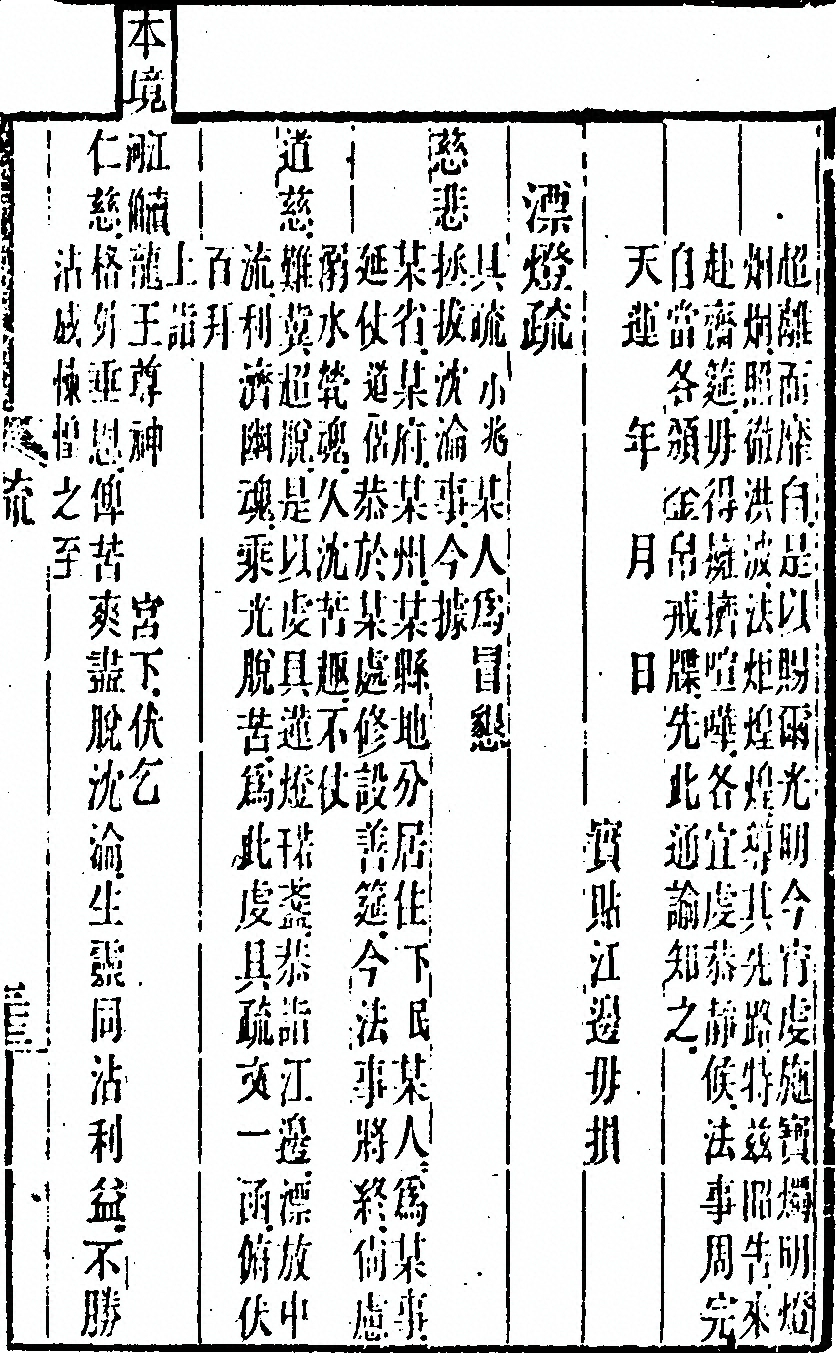 超離而靡自是以賜爾光明今宵虔施寶燭明燈
炯炯照徹洪波法炬煌煌導其先路特茲昭告來
赴齋筵毋得擁擠喧嘩各宜虔恭靜候法事周完
自當各頒金帛戒牒先此通諭知之
天運 年 月 日
實貼江邊毋損
漂燈疏
具疏小兆某人為冒懇
慈悲拯拔沈淪事今據
某省某府某州某縣地分居住下民某人為某事
延仗道侶恭於某處修設善筵今法事將終倘慮
溺水煢魂久沈苦趣不仗
道慈難冀超脫是以虔具蓮燈若盞恭詣江邊漂放中
流利濟幽魂乘光脫苦為此虔具疏文一函俯伏
百拜
上詣
本境江河瀆龍王尊神 宮下伏乞
仁慈格外垂恩俾苦爽盡脫沈淪生靈同沾利益不勝
沾感悚惶之至
疏